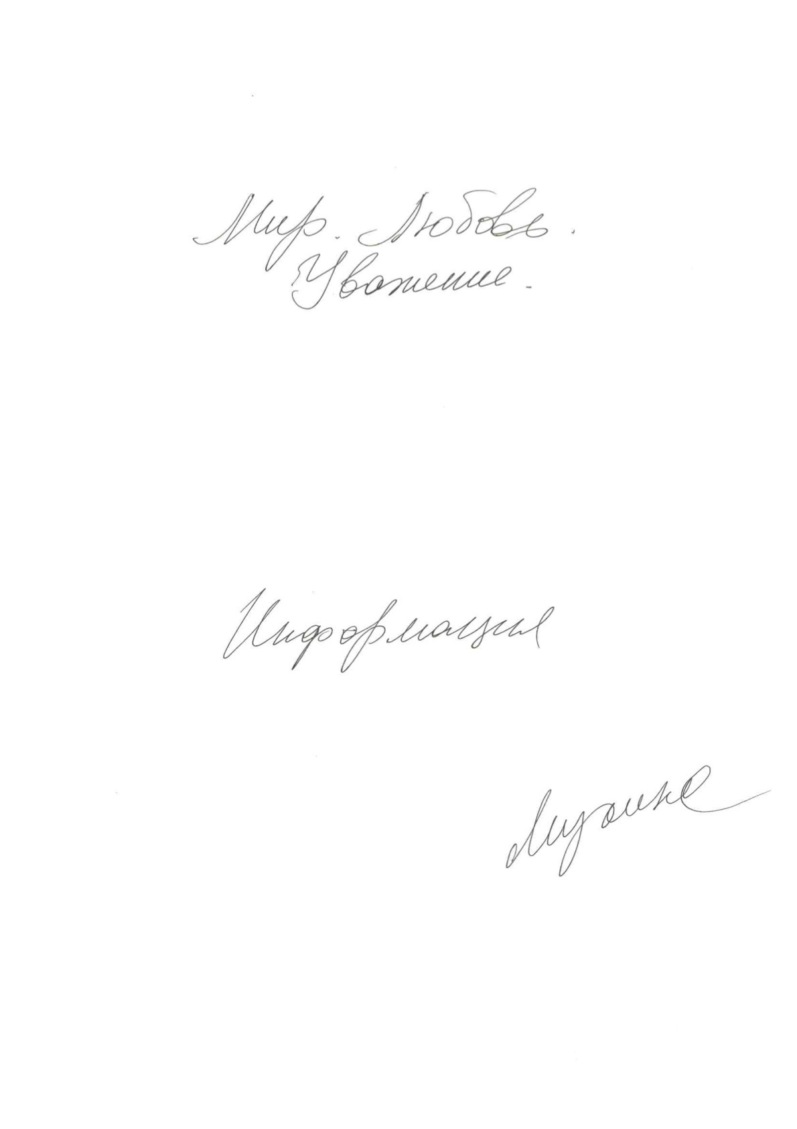 Мир. Любовь.
Уважение.
Информация